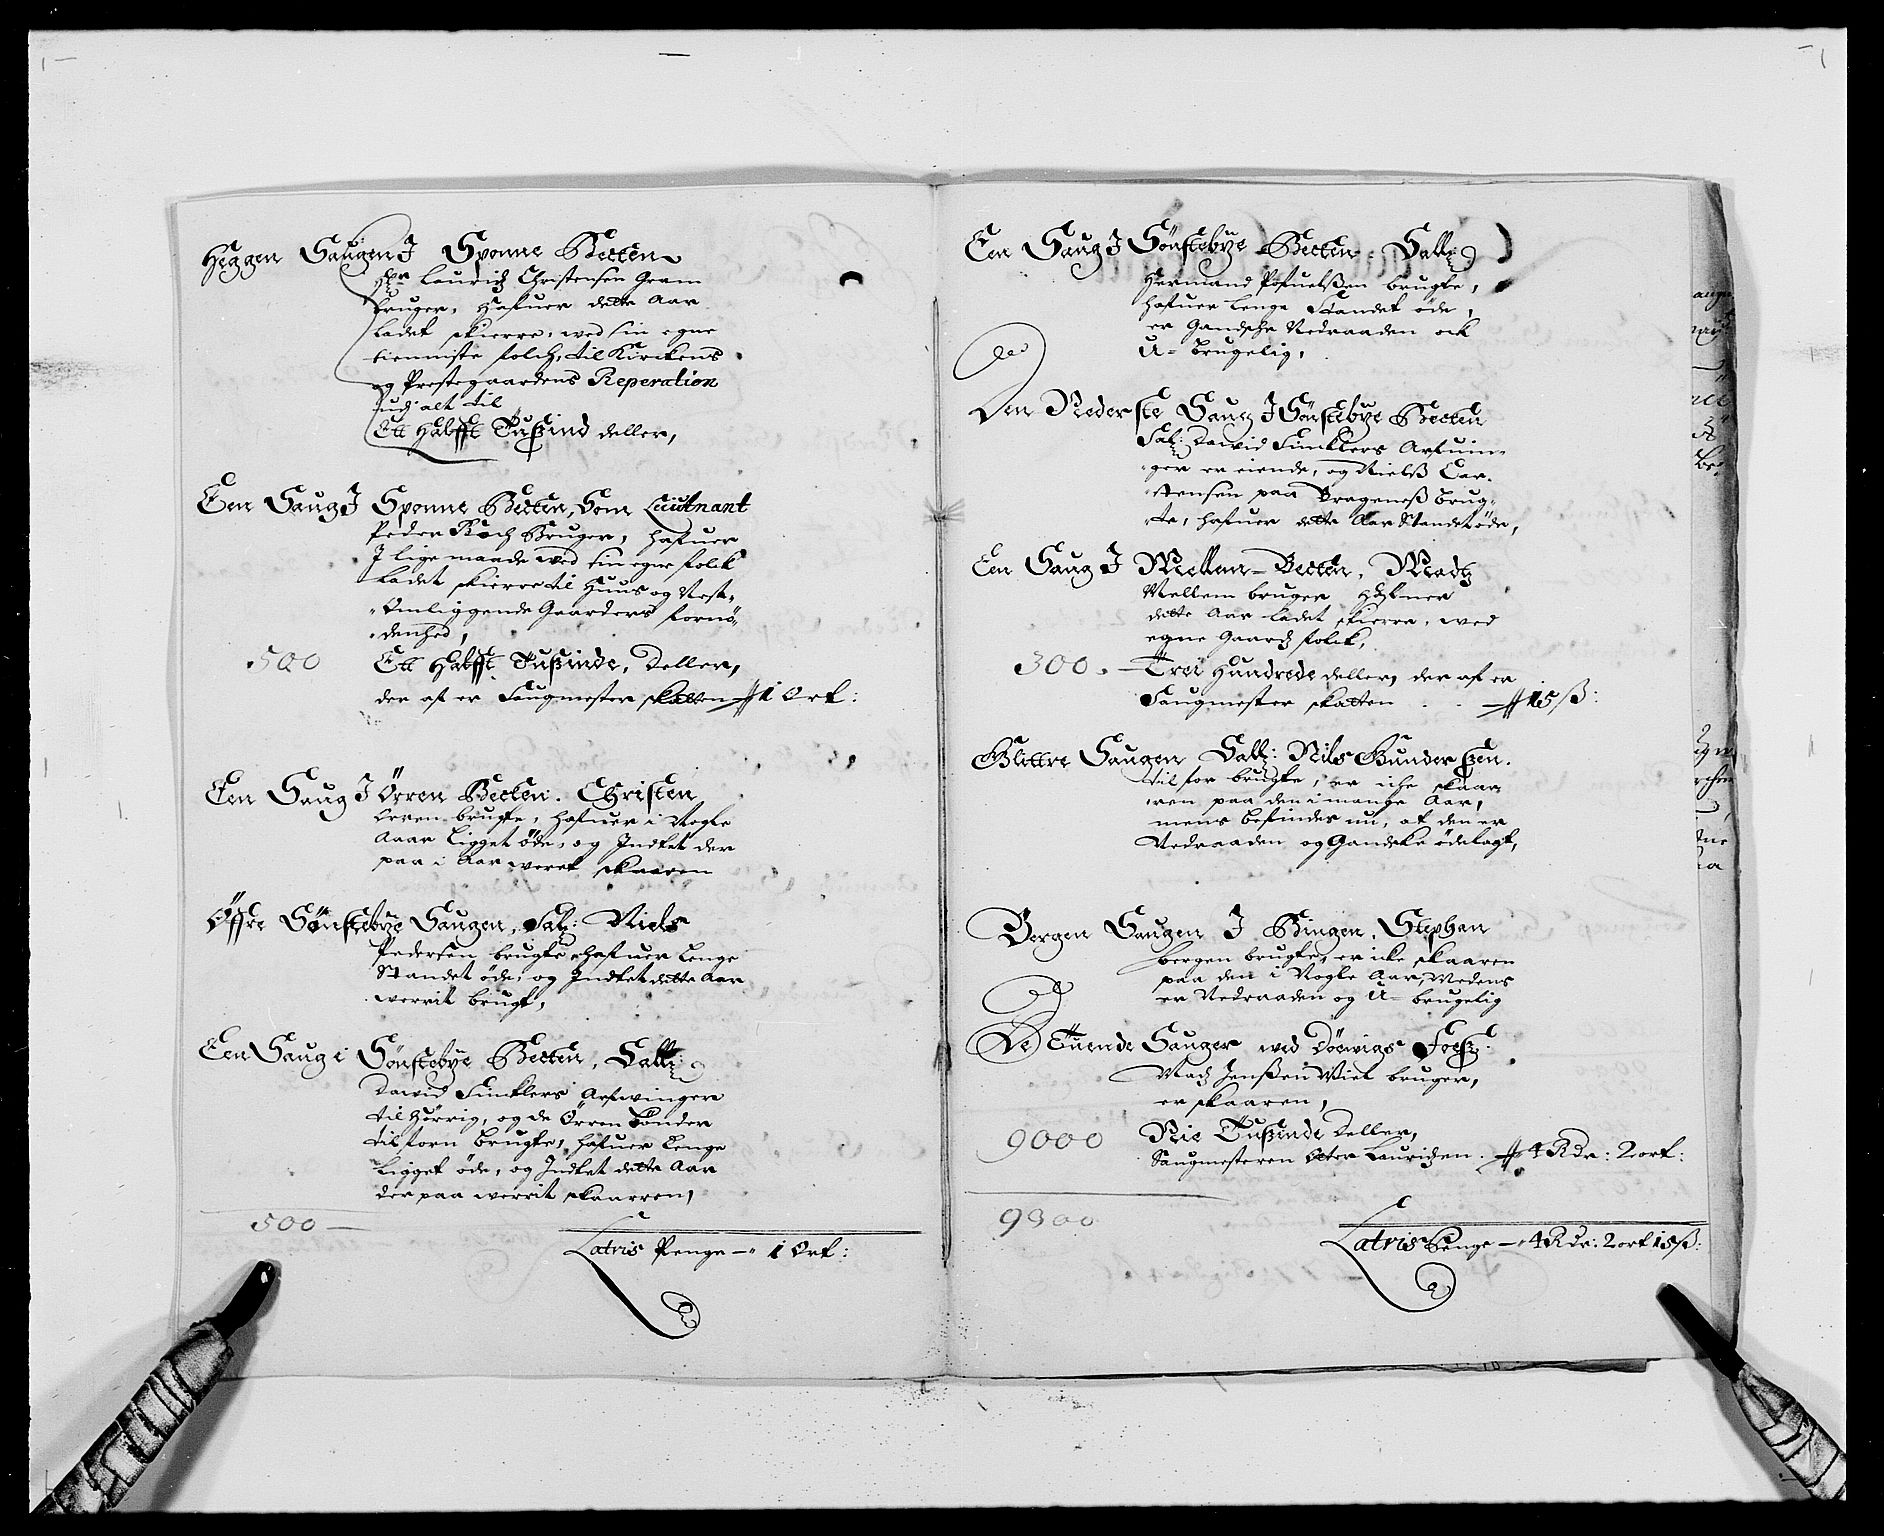 Heggen Saugen J Sponne Becken
Hr. Lauridz Christensen Gram
bruger, hafuer dette Aar
ladet skierre, med sin egne
tienniste folch, til Kirckens
og Prestegaardens Reperation
udj alt til
Ett Halfft Tußind deller,
Een Saug J Sponne Becken, Som Leiutnant
Peder Koch Bruger, hafuer
J lige maade med sin egne folck
Ladet skierre til Huus og Nest-
Omliggende Gaarders fornö-
denhed,
500 Ett Halfft Tußinde, Deller,
der af er Saugmester skatten 1 Ort:
Een Saug J Örren Becken. Christen
Örren brugte, hafuer i Nogle
Aaar Ligget öde, og Indtet der
paa i Aar weret skaaren
Öffre Sönstebÿe Saugen, Sal: Niels
Pedersen brugte hafuer Lenge
Standet öde, og Indtet dette Aar
werrit brugt,
Een Saug i Sönstebÿe Becken, Salli:
Dawid Sinklers Arfwinger
tilhörrig, og de Örren Bönder
tilforn brugte, hafuer Lenge
Ligget öde, og Indtet dette Aar
der paa werrit skaarren,
500 —
Latris Penge — 1 Ort:
Een Saug J Sönstebÿe Becken, Salli:
Hermand Pofuelßen brugte,
hafuer Lenge Standet öde,
er Gandsche Nedraaden och
U-brugelig,
Den Nederste Saug J Sönstebÿe Becken
Sal: Dawid Sinklers Arfuin-
ger er eiende, og Nielß Car-
stensen paa Bragenes brug-
te, hafuer dette Aar Standet öde,
Een Saug J Mellem-Becken, Madtz
Mellem bruger hafuer
dette Aar ladet skierre, med
egne Gaardz folck,
300. — Trei Hundrede deller, der af er
Saugmester skatten 15 ß:
Blittre Saugen Salli: Nils Gunderßen.
tilfor brugte, er iche skaar-
ren paa den i mange Aar,
mens befindes nu, at den er
Nedraaden og Gandske ödelagt,
Bergen Saugen J Bingen, Stephan
bergen brugte, er icke skaaren
paa den i Nogle Aar, Medens
er Nedraaden og U-brugelig
De Tuende Sauger wed Döewigs Foeß.
Madz Jenßen Wiel bruger,
er skaaren,
9000 Nie Tußende Deller,
Saugmesteren Otter Lauridzen. 4 Rdr: 2 ort:
9300
Latris Penge — 4 Rdr: 2 ort 15 ß: